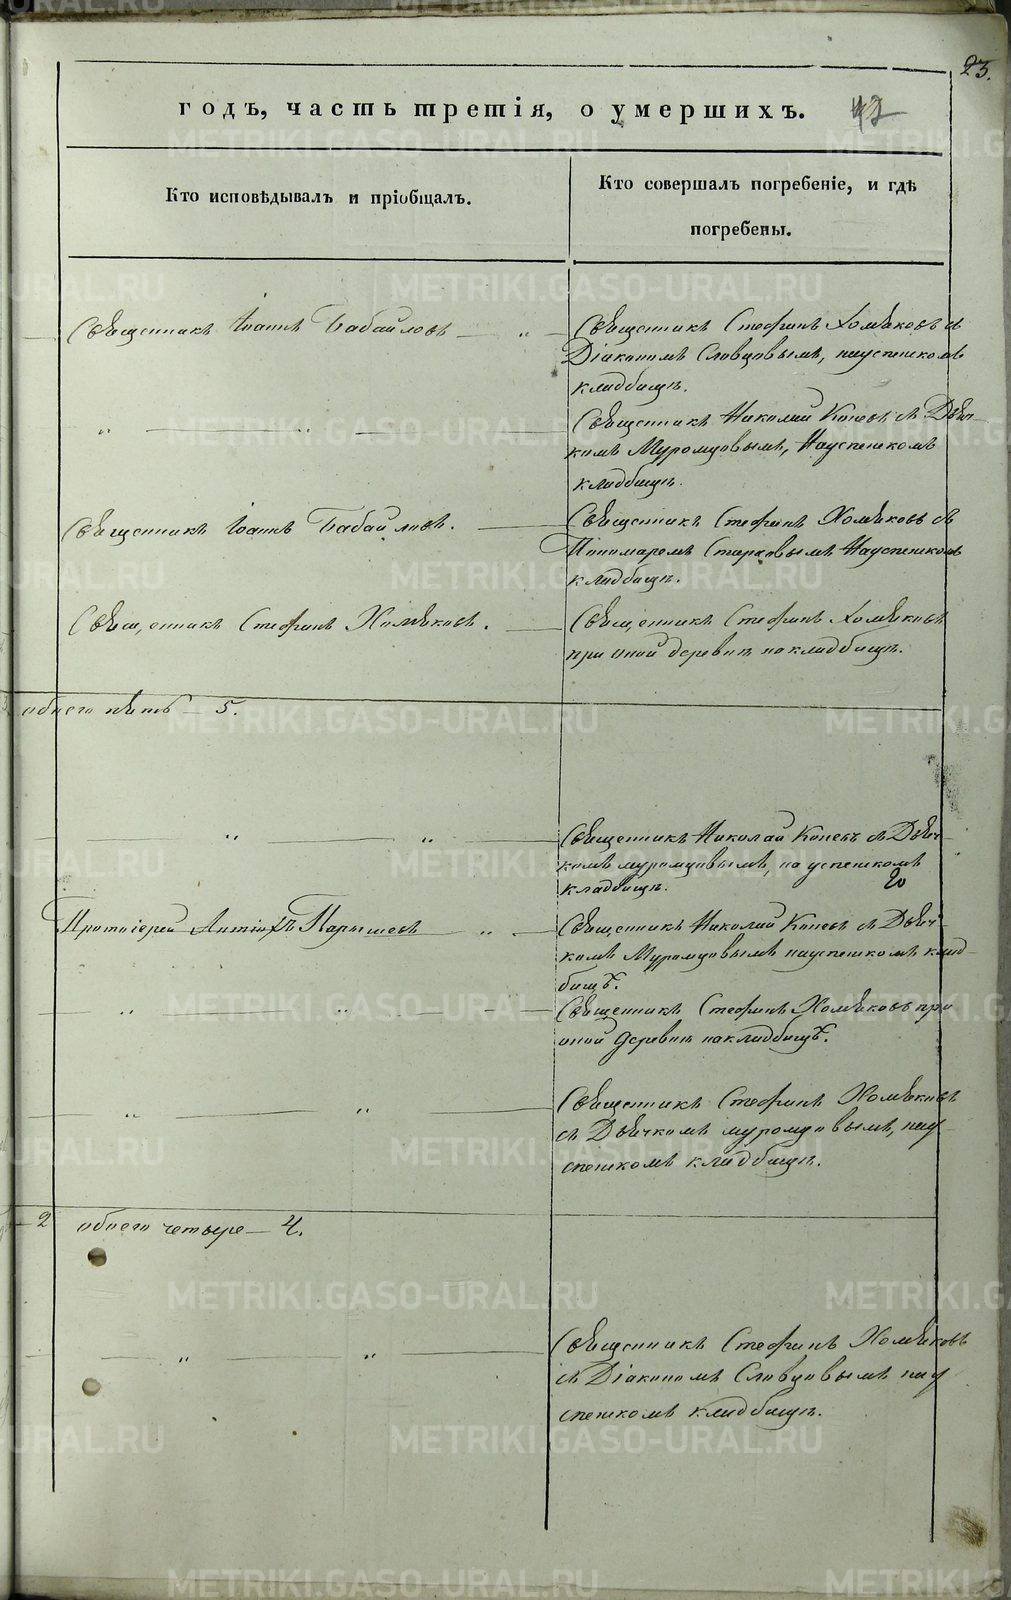 23.
годъ, часть третія, о умершихъ.
Кто исповѣдывалъ и пріобщалъ.
Кто совершалъ погребеніе, и гдѣ
погребены.
Священникъ Іоаннъ Бабайловъ
Священникъ Стефанъ Хомяковъ съ
Діакономъ Словцовымъ, науспенскомъ
кладбищѣ.
Священникъ Николай Коневъ съ Дьяч-
комъ Муромцовымъ, Науспенскомъ
кладбищѣ.
Священникъ Іоаннъ Бабайловъ.
Священникъ Стефанъ Хомяковъ съ
Пономаремъ Старковымъ Науспенскомъ
кладбищѣ.
Священникъ Стефанъ Хомяковъ.
Священникъ Стефанъ Хомяковъ
при оной деревнѣ на кладбищѣ.
обоего пять 5.
Священникъ Николай Коневъ съ Дьяч-
комъ муромцовымъ, на успенскомъ
кладбищѣ.
20
Протоіерей Антіохъ Парышевъ
Священникъ Николай Коневъ съ Дьяч-
комъ Муромцовымъ науспенскомъ клад-
бищѣ.
Священникъ Стефанъ Хомяковъ при
оной деревнѣ на кладбищѣ.
Священникъ Стефанъ Хомяковъ
съ Дьячкомъ муромцовымъ, нау-
спенскомъ кладбищѣ.
2 обоего четыре 4.
Священникъ Стефанъ Хомяковъ
съ Діакономъ Словцовымъ нау
спенскомъ кладбищѣ.
METRIKI.GASO-URAL.RU